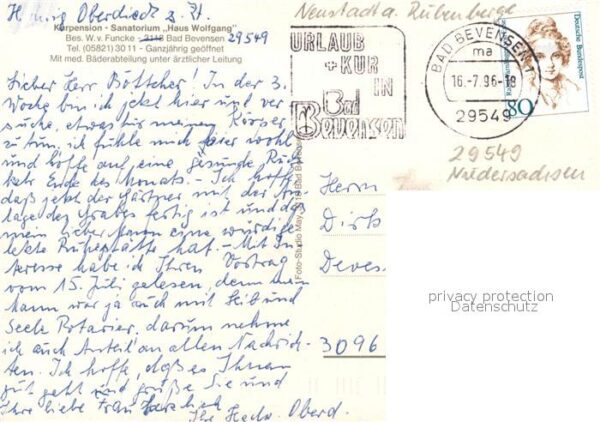 Oberdieck z. Zt.
Kurpension - Sanatorium „Haus Wolfgang"
Bes. W. v. Funcke - 3118 Bad Bevensen
29549
Tel. (05821) 3011 - Ganzjährig geöffnet
Mit med. Bäderabteilung unter ärztlicher Leitung
Lieber Herr Böttcher! In der 3.
Woche bin ich jetzt hier und ver
suche, etwas für meinen Körper
zu tun, ich fühle mich hier wohl
und hoffe auf eine gesunde Rück
kehr Ende des Monats. - Ich hoffe,
daß jetzt der Gärtner mit der An
lage des Grabes fertig ist und daß
mein lieber Mann eine würdige
letzte Ruhestätte hat. - Mit In
teresse habe ich Ihren Vortrag
vom 15. Juli gelesen, denn mein
Mann war ja auch mit Leib und
Seele Rotarier, darum nehme
ich auch Anteil an allen Nachrich-
ten. Ich hoffe, daß es Ihnen
gut geht und grüße Sie und
Ihre liebe Frau herzlich
Ihre Oberd.
Foto-Studio May, 3118 Bad
Neustadt a. Rübenberge
URLAUB
+ KUR
IN
Bad
Bevensen
BAD BEVENSEN 1
ma
16.-7.96-18
29549
Deutsche Bundespost
80
29549
Niedersachsen
Herrn
Dirk
3096
privacy protection
Datenschutz